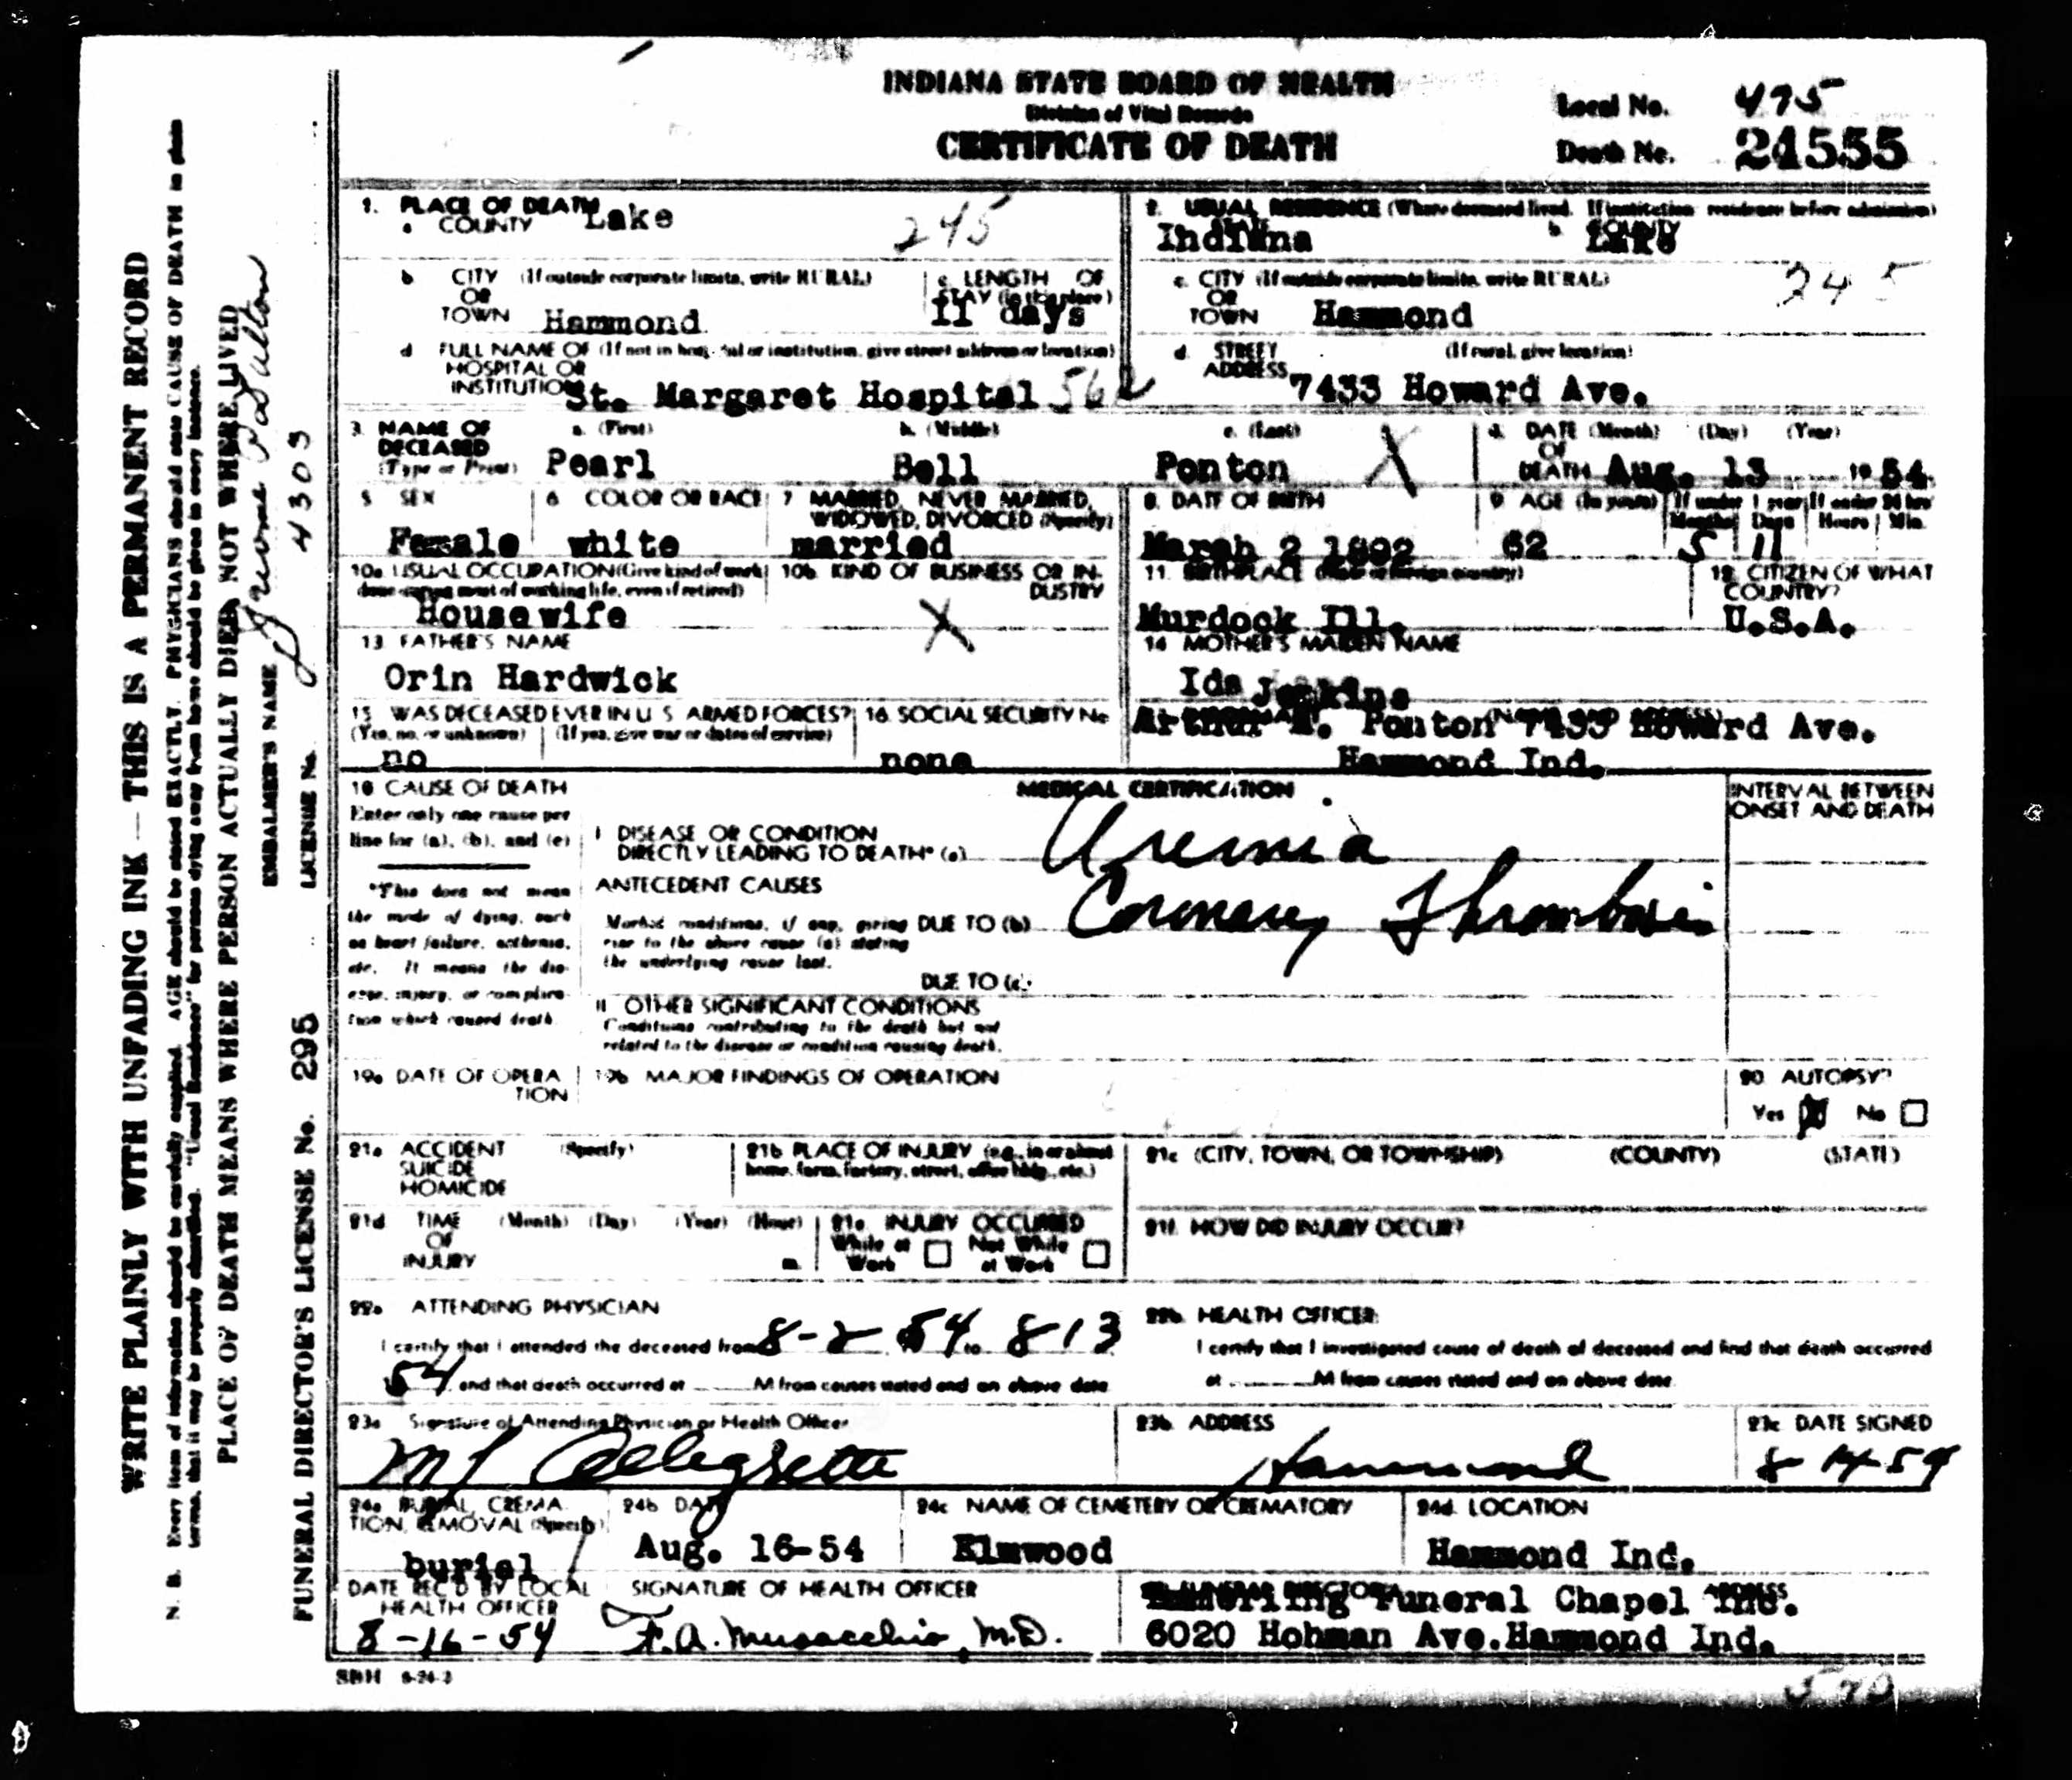 INDIANA STATE BOARD OF HEALTH
Division of Vital Records
CERTIFICATE OF DEATH
Local No. 495
Death No. 24555
1. PLACE OF DEATH
a COUNTY Lake 245
2. USUAL RESIDENCE (Where deceased lived. If institution residence before admission)
Indiana b COUNTY Lake
b CITY (If outside corporate limits, write RURAL) OR TOWN Hammond
c. LENGTH OF STAY (in this place) 11 days
c. CITY (If outside corporate limits, write RURAL) OR TOWN Hammond 245
d FULL NAME OF (If not in hospital or institution, give street address or location)
HOSPITAL OR INSTITUTION St. Margaret Hospital
d. STREET ADDRESS (If rural, give location) 7433 Howard Ave.
3. NAME OF DECEASED (Type or Print)
a. (First) Pearl b. (Middle) Bell c. (Last) Ponton X
4. DATE OF DEATH (Month) (Day) (Year) Aug. 13 1954
5 SEX Female
6 COLOR OR RACE white
7 MARRIED, NEVER MARRIED, WIDOWED, DIVORCED (Specify) married
8. DATE OF BIRTH March 2 1892
9 AGE (In years) 62 If under 1 year Months 5 Days 11 If under 24 hrs Hours Min.
10a USUAL OCCUPATION (Give kind of work done during most of working life, even if retired) Housewife
10b KIND OF BUSINESS OR INDUSTRY X
11. BIRTHPLACE (State or foreign country) Murdock Ill.
12 CITIZEN OF WHAT COUNTRY? U.S.A.
13 FATHER'S NAME
Orin Hardwick
14 MOTHER'S MAIDEN NAME
Ida Jenkins
15 WAS DECEASED EVER IN U S ARMED FORCES?
(Yes, no, or unknown) (If yes, give war or dates of service)
no
16 SOCIAL SECURITY No
none
Arthur Ponton 7433 Howard Ave.
Hammond Ind.
18 CAUSE OF DEATH
Enter only one cause per line for (a), (b), and (c)
*This does not mean the mode of dying, such as heart failure, asthenia, etc. It means the disease, injury, or complication which caused death.
MEDICAL CERTIFICATION
INTERVAL BETWEEN ONSET AND DEATH
I DISEASE OR CONDITION
DIRECTLY LEADING TO DEATH* (a) Uremia
ANTECEDENT CAUSES
Morbid conditions, if any, giving rise to the above cause (a) stating the underlying cause last.
DUE TO (b) Coronary Thrombosis
DUE TO (c)
II OTHER SIGNIFICANT CONDITIONS
Conditions contributing to the death but not
related to the disease or condition causing death.
19a DATE OF OPERATION
19b MAJOR FINDINGS OF OPERATION
20. AUTOPSY?
Yes X No
21a ACCIDENT SUICIDE HOMICIDE (Specify)
21b PLACE OF INJURY (e.g., in or about home, farm, factory, street, office bldg., etc.)
21c (CITY, TOWN, OR TOWNSHIP) (COUNTY) (STATE)
21d TIME OF INJURY (Month) (Day) (Year) (Hour) m.
21e. INJURY OCCURRED
While at Work Not While at Work
21f. HOW DID INJURY OCCUR?
22a ATTENDING PHYSICIAN
I certify that I attended the deceased from 8-2 54 to 8 13
54 and that death occurred at M from causes stated and on above date
22b HEALTH OFFICER
I certify that I investigated cause of death of deceased and find that death occurred
at M from causes stated and on above date
23a Signature of Attending Physician or Health Officer
23b ADDRESS
Hammond
23c DATE SIGNED
8 14 54
24a BURIAL, CREMATION, REMOVAL (Specify)
burial
24b DATE
Aug. 16-54
24c NAME OF CEMETERY OR CREMATORY
Elmwood
24d LOCATION
Hammond Ind.
DATE REC'D BY LOCAL HEALTH OFFICER
8-16-54
SIGNATURE OF HEALTH OFFICER
F. A. Musacchio, M.D.
Funeral Chapel Inc.
6020 Hohman Ave. Hammond Ind.
SBH 6-24-2
WRITE PLAINLY WITH UNFADING INK — THIS IS A PERMANENT RECORD
N. B. Every item of information should be carefully supplied. AGE should be stated EXACTLY. PHYSICIANS should state CAUSE OF DEATH in plain
terms, that it may be properly classified. "Usual Residence" for persons dying away from home should be given in every instance.
PLACE OF DEATH MEANS WHERE PERSON ACTUALLY DIED, NOT WHERE LIVED
EMBALMER'S NAME
LICENSE No. 4303
FUNERAL DIRECTOR'S LICENSE No. 295